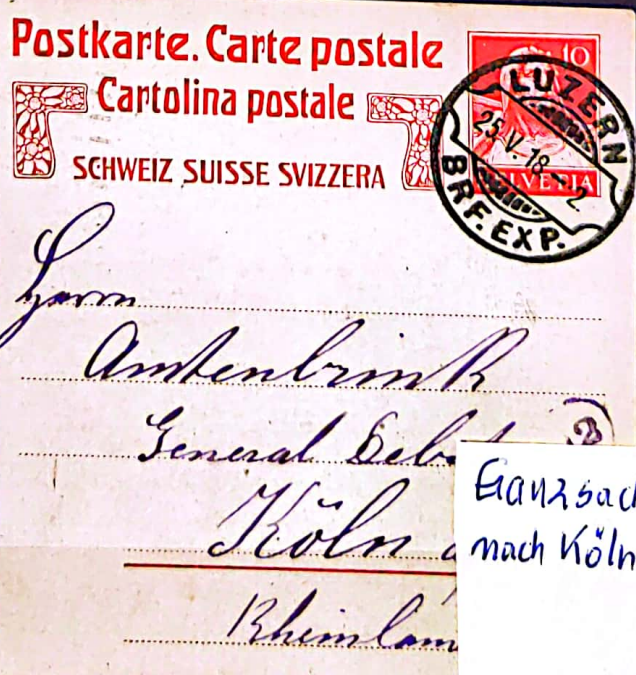 Postkarte. Carte postale
Cartolina postale
SCHWEIZ SUISSE SVIZZERA
10
HELVETIA
LUZERN
25.V.18–12
BRF. EXP.
Herrn
Amtenbrink
General
Köln
Ganzsac
nach Köln